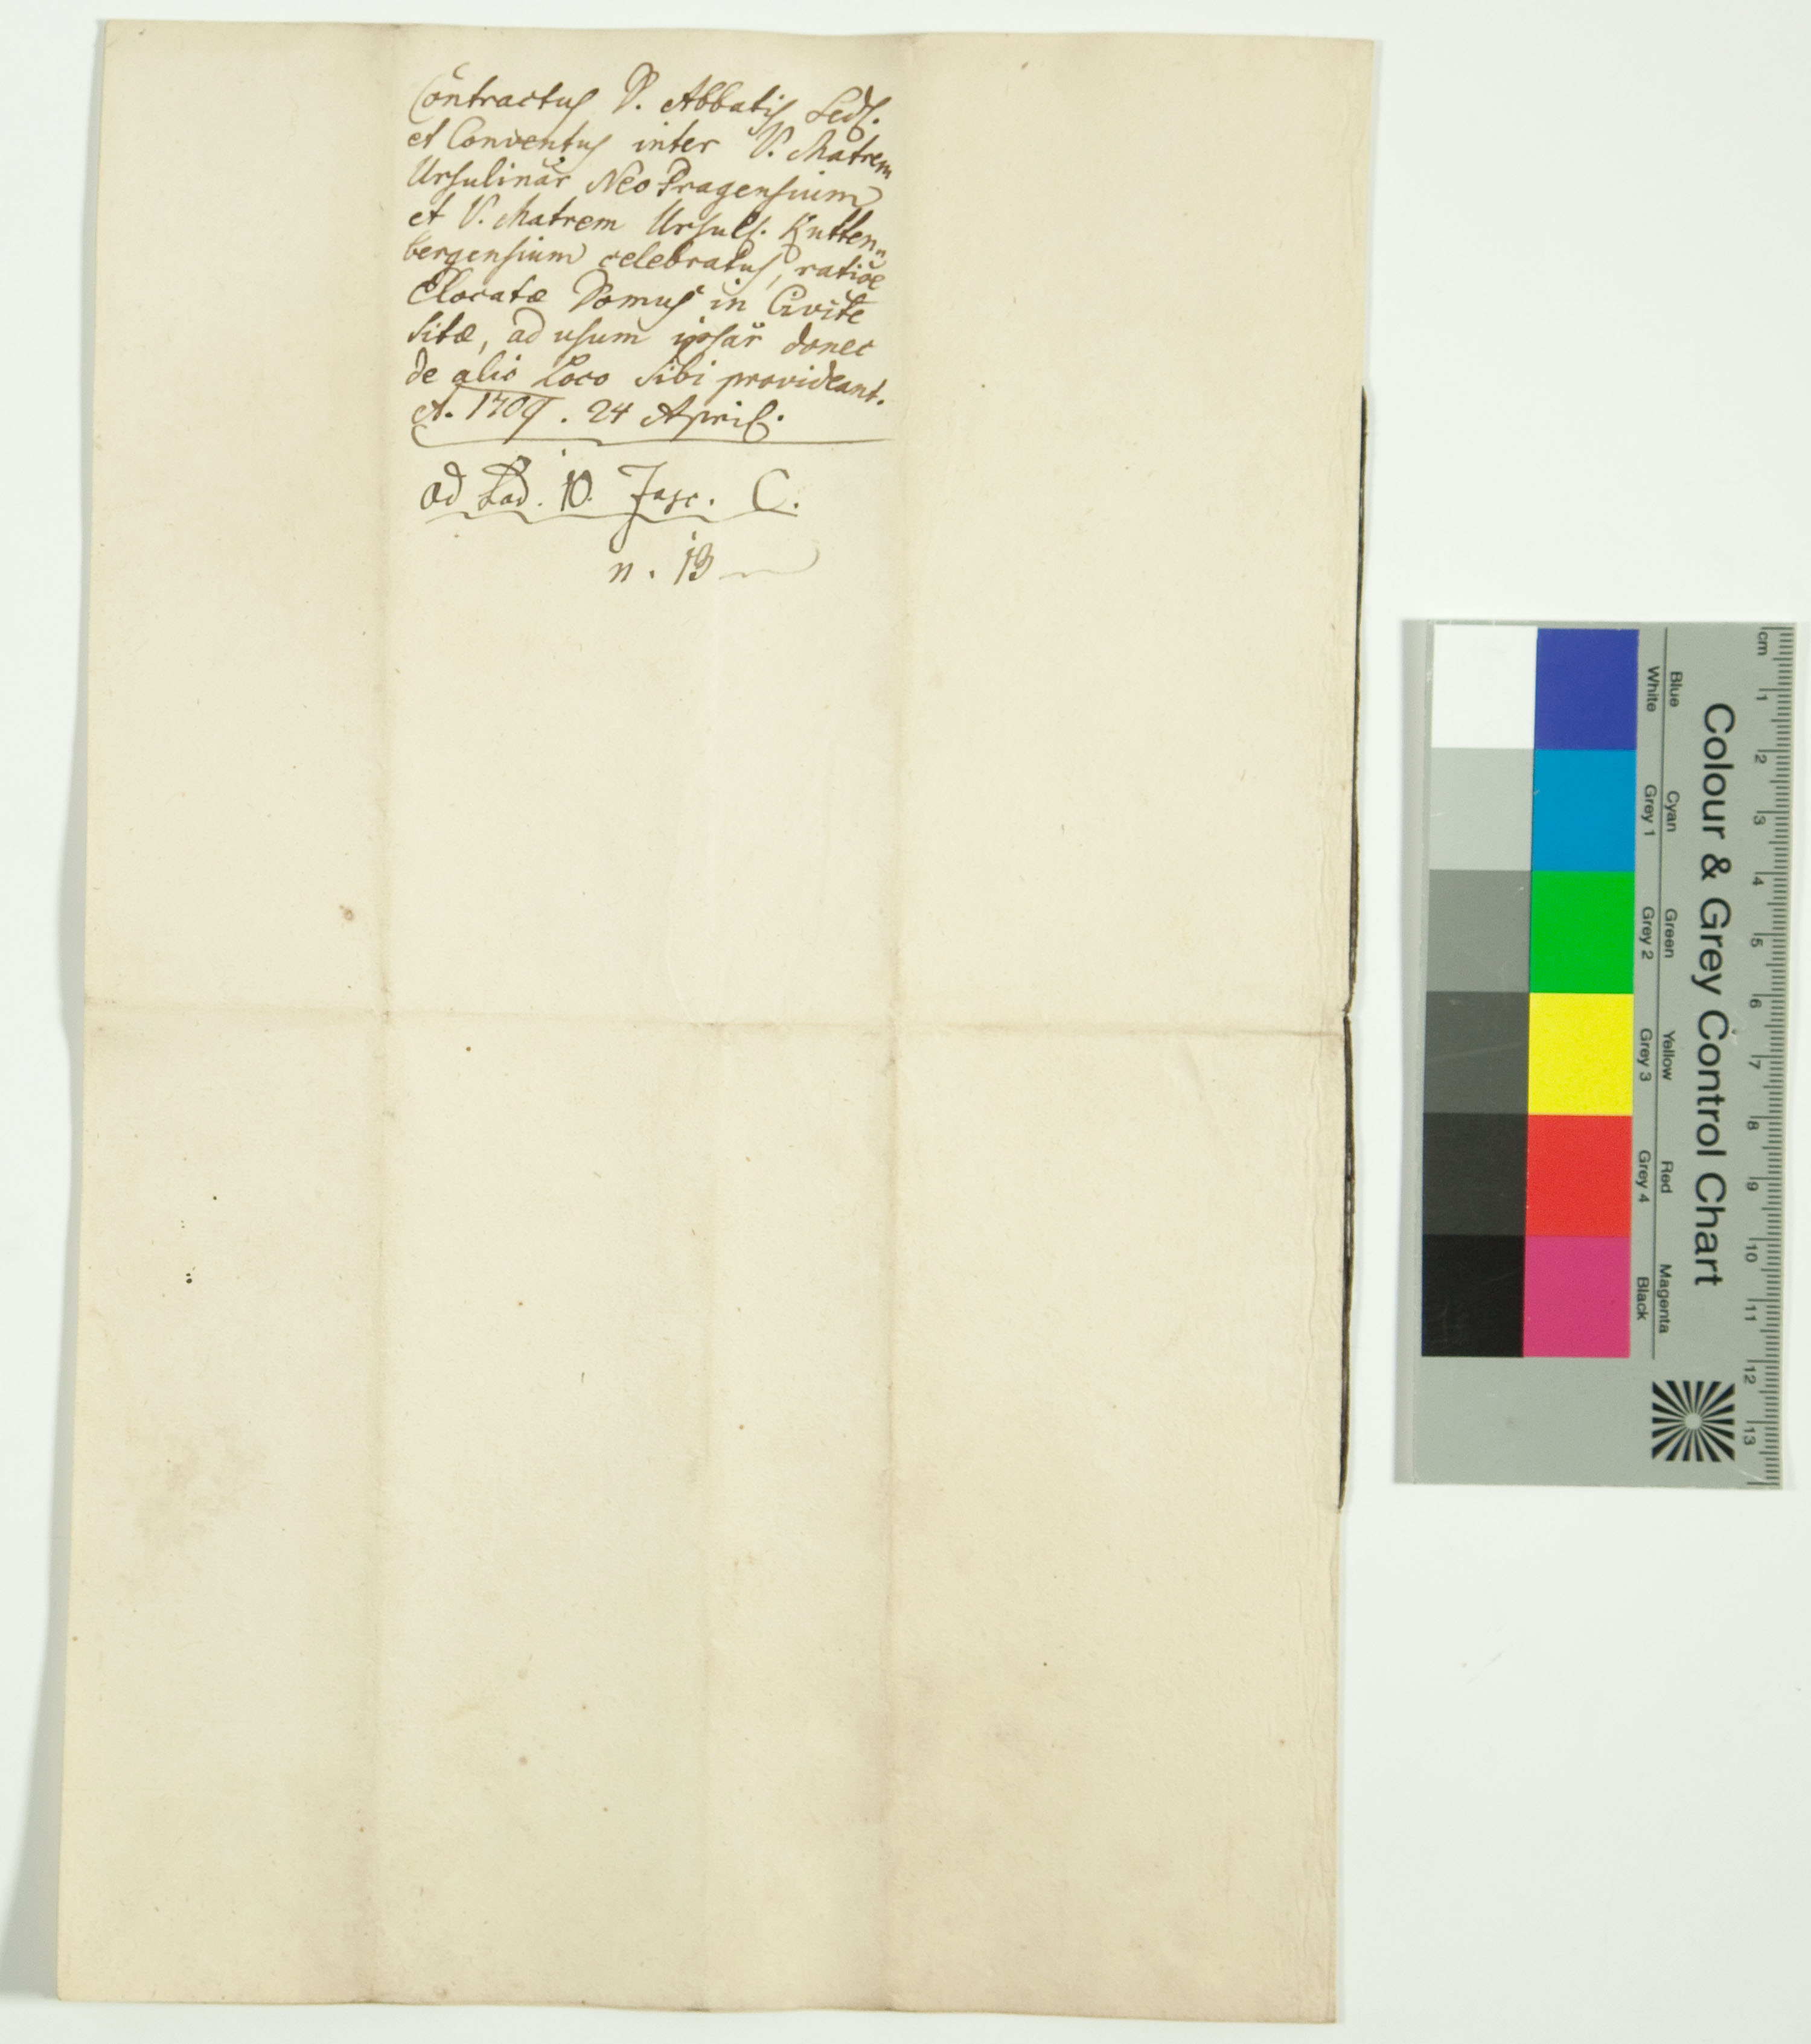 Contractus D. Abbatis Sedl.
et Conventus inter V. Matrem
Ursulinar̃ Neo Pragensium
et V. Matrem Ursull. Kutten„
bergensium celebratus, ratiõe
Elocatæ Domus in Civitẽ
sitæ, ad usum ipsar̃ donec
de alio Loco sibi provideant.
A. 1709. 24 April.
ad Lad. 10. Fasc. C.
n. 13
Colour & Grey Control Chart
Blue Cyan Green Yellow Red Magenta
White Grey 1 Grey 2 Grey 3 Grey 4 Black
cm 1 2 3 4 5 6 7 8 9 10 11 12 13